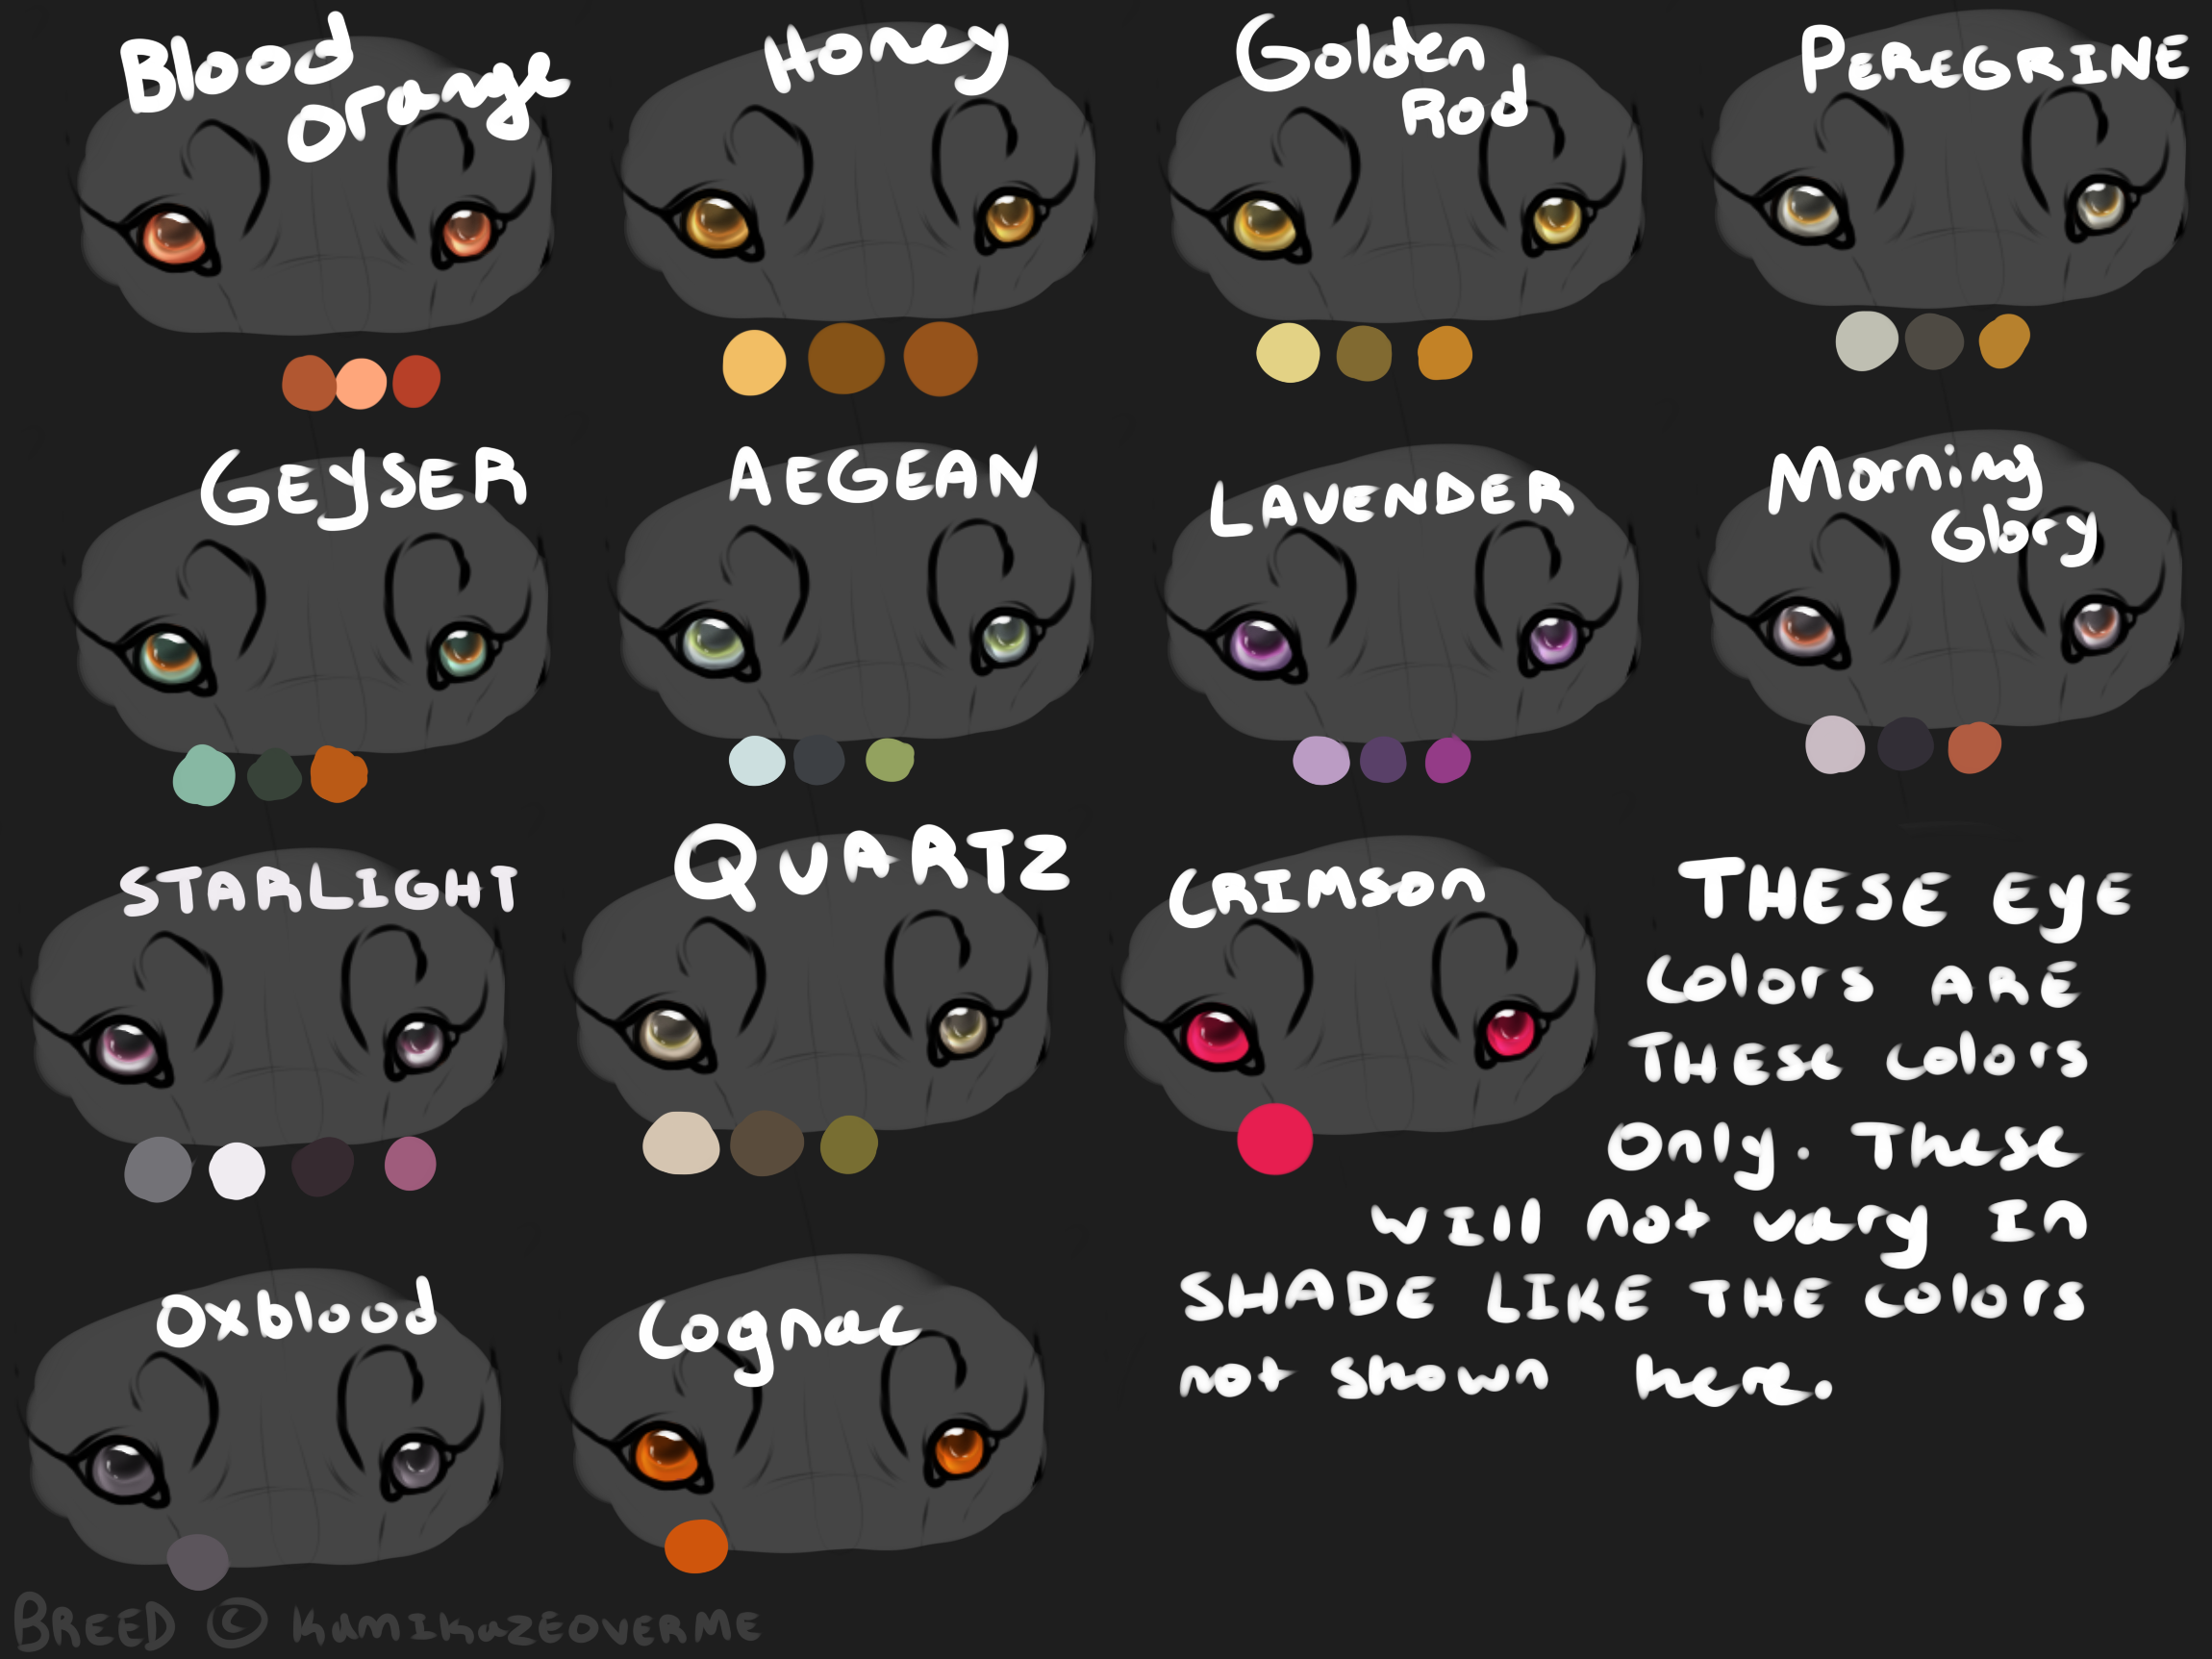 Blood
Orange
Honey
Golden
Rod
PEREGRINE
GEYSER
AEGEAN
LAVENDER
Morning
Glory
STARLIGHT
QUARTZ
CRIMSON
THESE EYE
Colors ARE
THESE colors
Only. These
will not vary In
SHADE LIKE THE colors
not shown here.
Oxblood
Cognac
BREED © KAMIKAZEOVERME